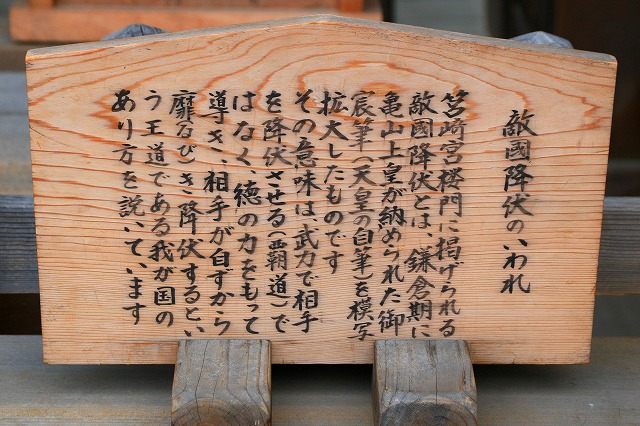 敵國降伏のいわれ
筥崎宮楼門に掲げられる
敵國降伏とは、鎌倉期に
亀山上皇が納められた御
宸筆(天皇の自筆)を模写
拡大したものです
その意味は武力で相手
を降伏させる(覇道)で
はなく、徳の力をもって
導き、相手が自ずから
靡なびき降伏するとい
う王道である我が国の
あり方を説いています